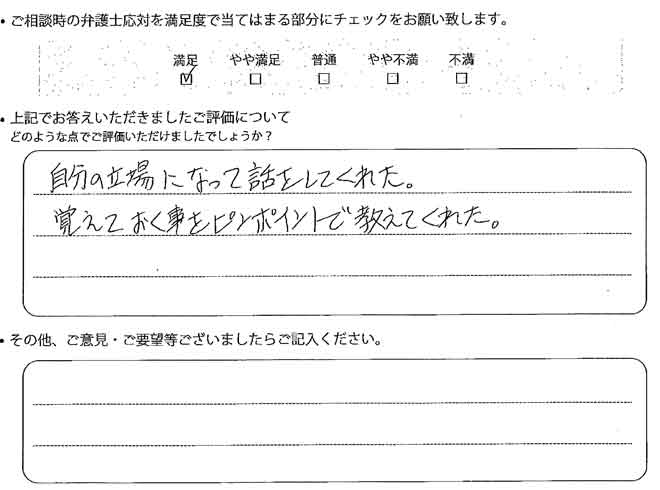 • ご相談時の弁護士応対を満足度で当てはまる部分にチェックをお願い致します。
満足 やや満足 普通 やや不満 不満
☑ □ □ □ □
• 上記でお答えいただきましたご評価について
どのような点でご評価いただけましたでしょうか?
自分の立場になって話をしてくれた。
覚えておく事をピンポイントで教えてくれた。
• その他、ご意見・ご要望等ございましたらご記入ください。